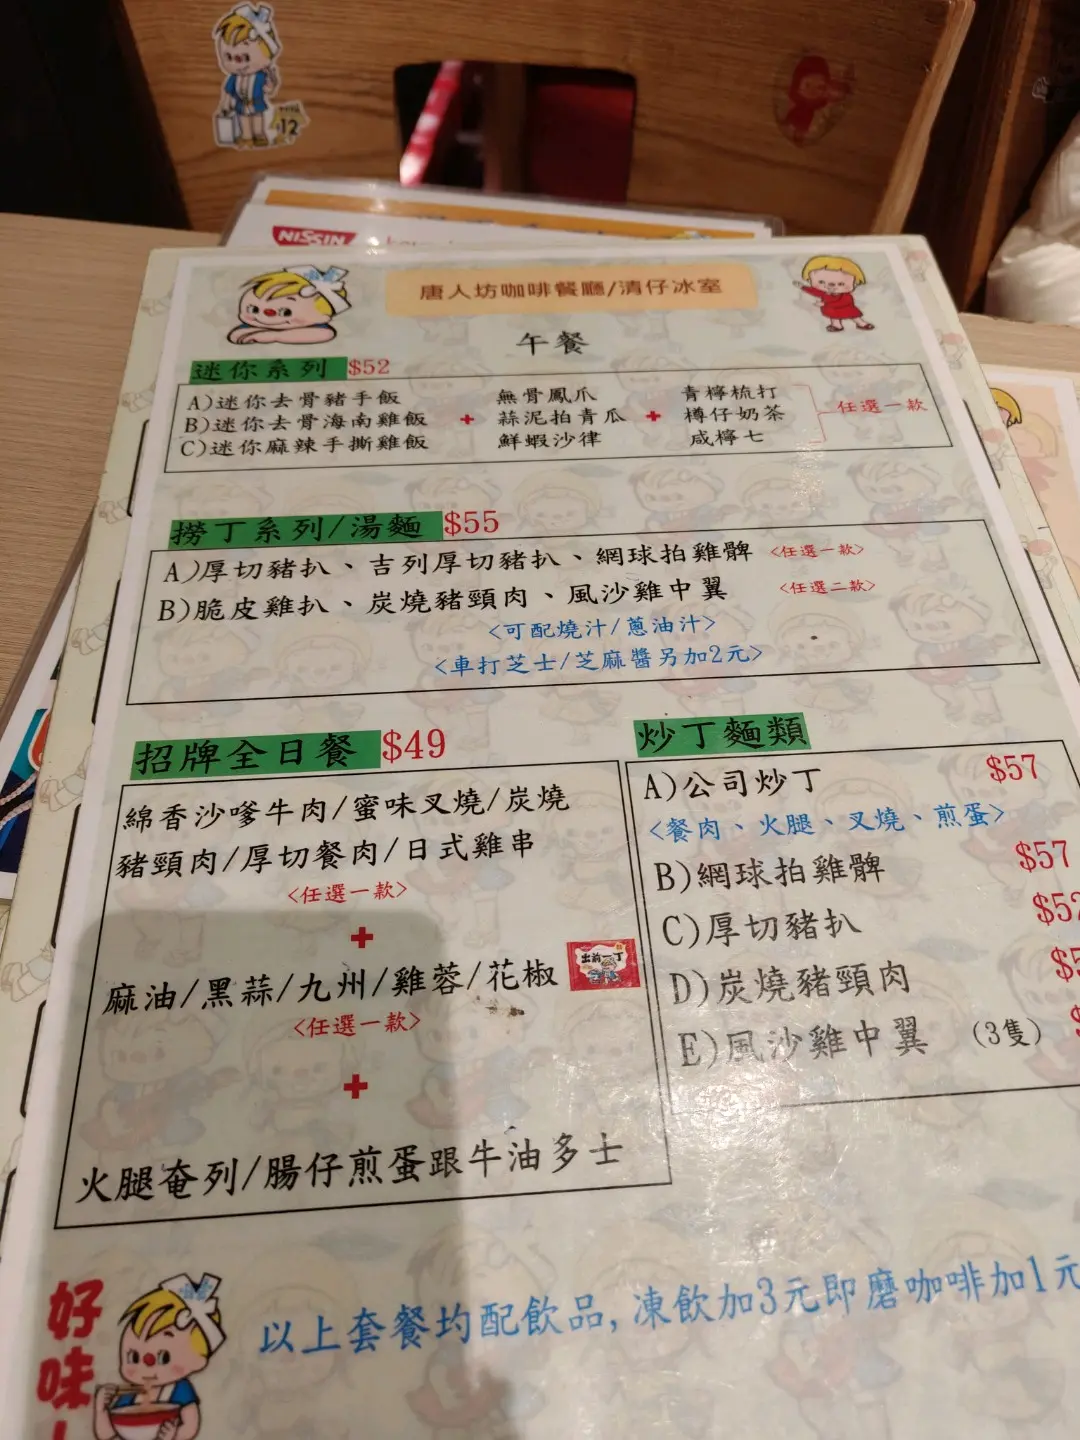 NISSIN
唐人坊咖啡餐廳/清仔冰室
午餐
迷你系列 $52
A)迷你去骨豬手飯
B)迷你去骨海南雞飯
C)迷你麻辣手撕雞飯
+
無骨鳳爪
蒜泥拍青瓜
鮮蝦沙律
+
青檸梳打
樽仔奶茶
咸檸七
任選一款
撈丁系列/湯麵 $55
A)厚切豬扒、吉列厚切豬扒、網球拍雞髀 <任選一款>
B)脆皮雞扒、炭燒豬頸肉、風沙雞中翼 <任選二款>
<可配燒汁/蔥油汁>
<車打芝士/芝麻醬另加2元>
招牌全日餐 $49
綿香沙嗲牛肉/蜜味叉燒/炭燒
豬頸肉/厚切餐肉/日式雞串
<任選一款>
+
麻油/黑蒜/九州/雞蓉/花椒
出前一丁
<任選一款>
+
火腿奄列/腸仔煎蛋跟牛油多士
炒丁麵類
A)公司炒丁 $57
<餐肉、火腿、叉燒、煎蛋>
B)網球拍雞髀 $57
C)厚切豬扒
D)炭燒豬頸肉
E)風沙雞中翼 (3隻)
好味
以上套餐均配飲品,凍飲加3元即磨咖啡加1元